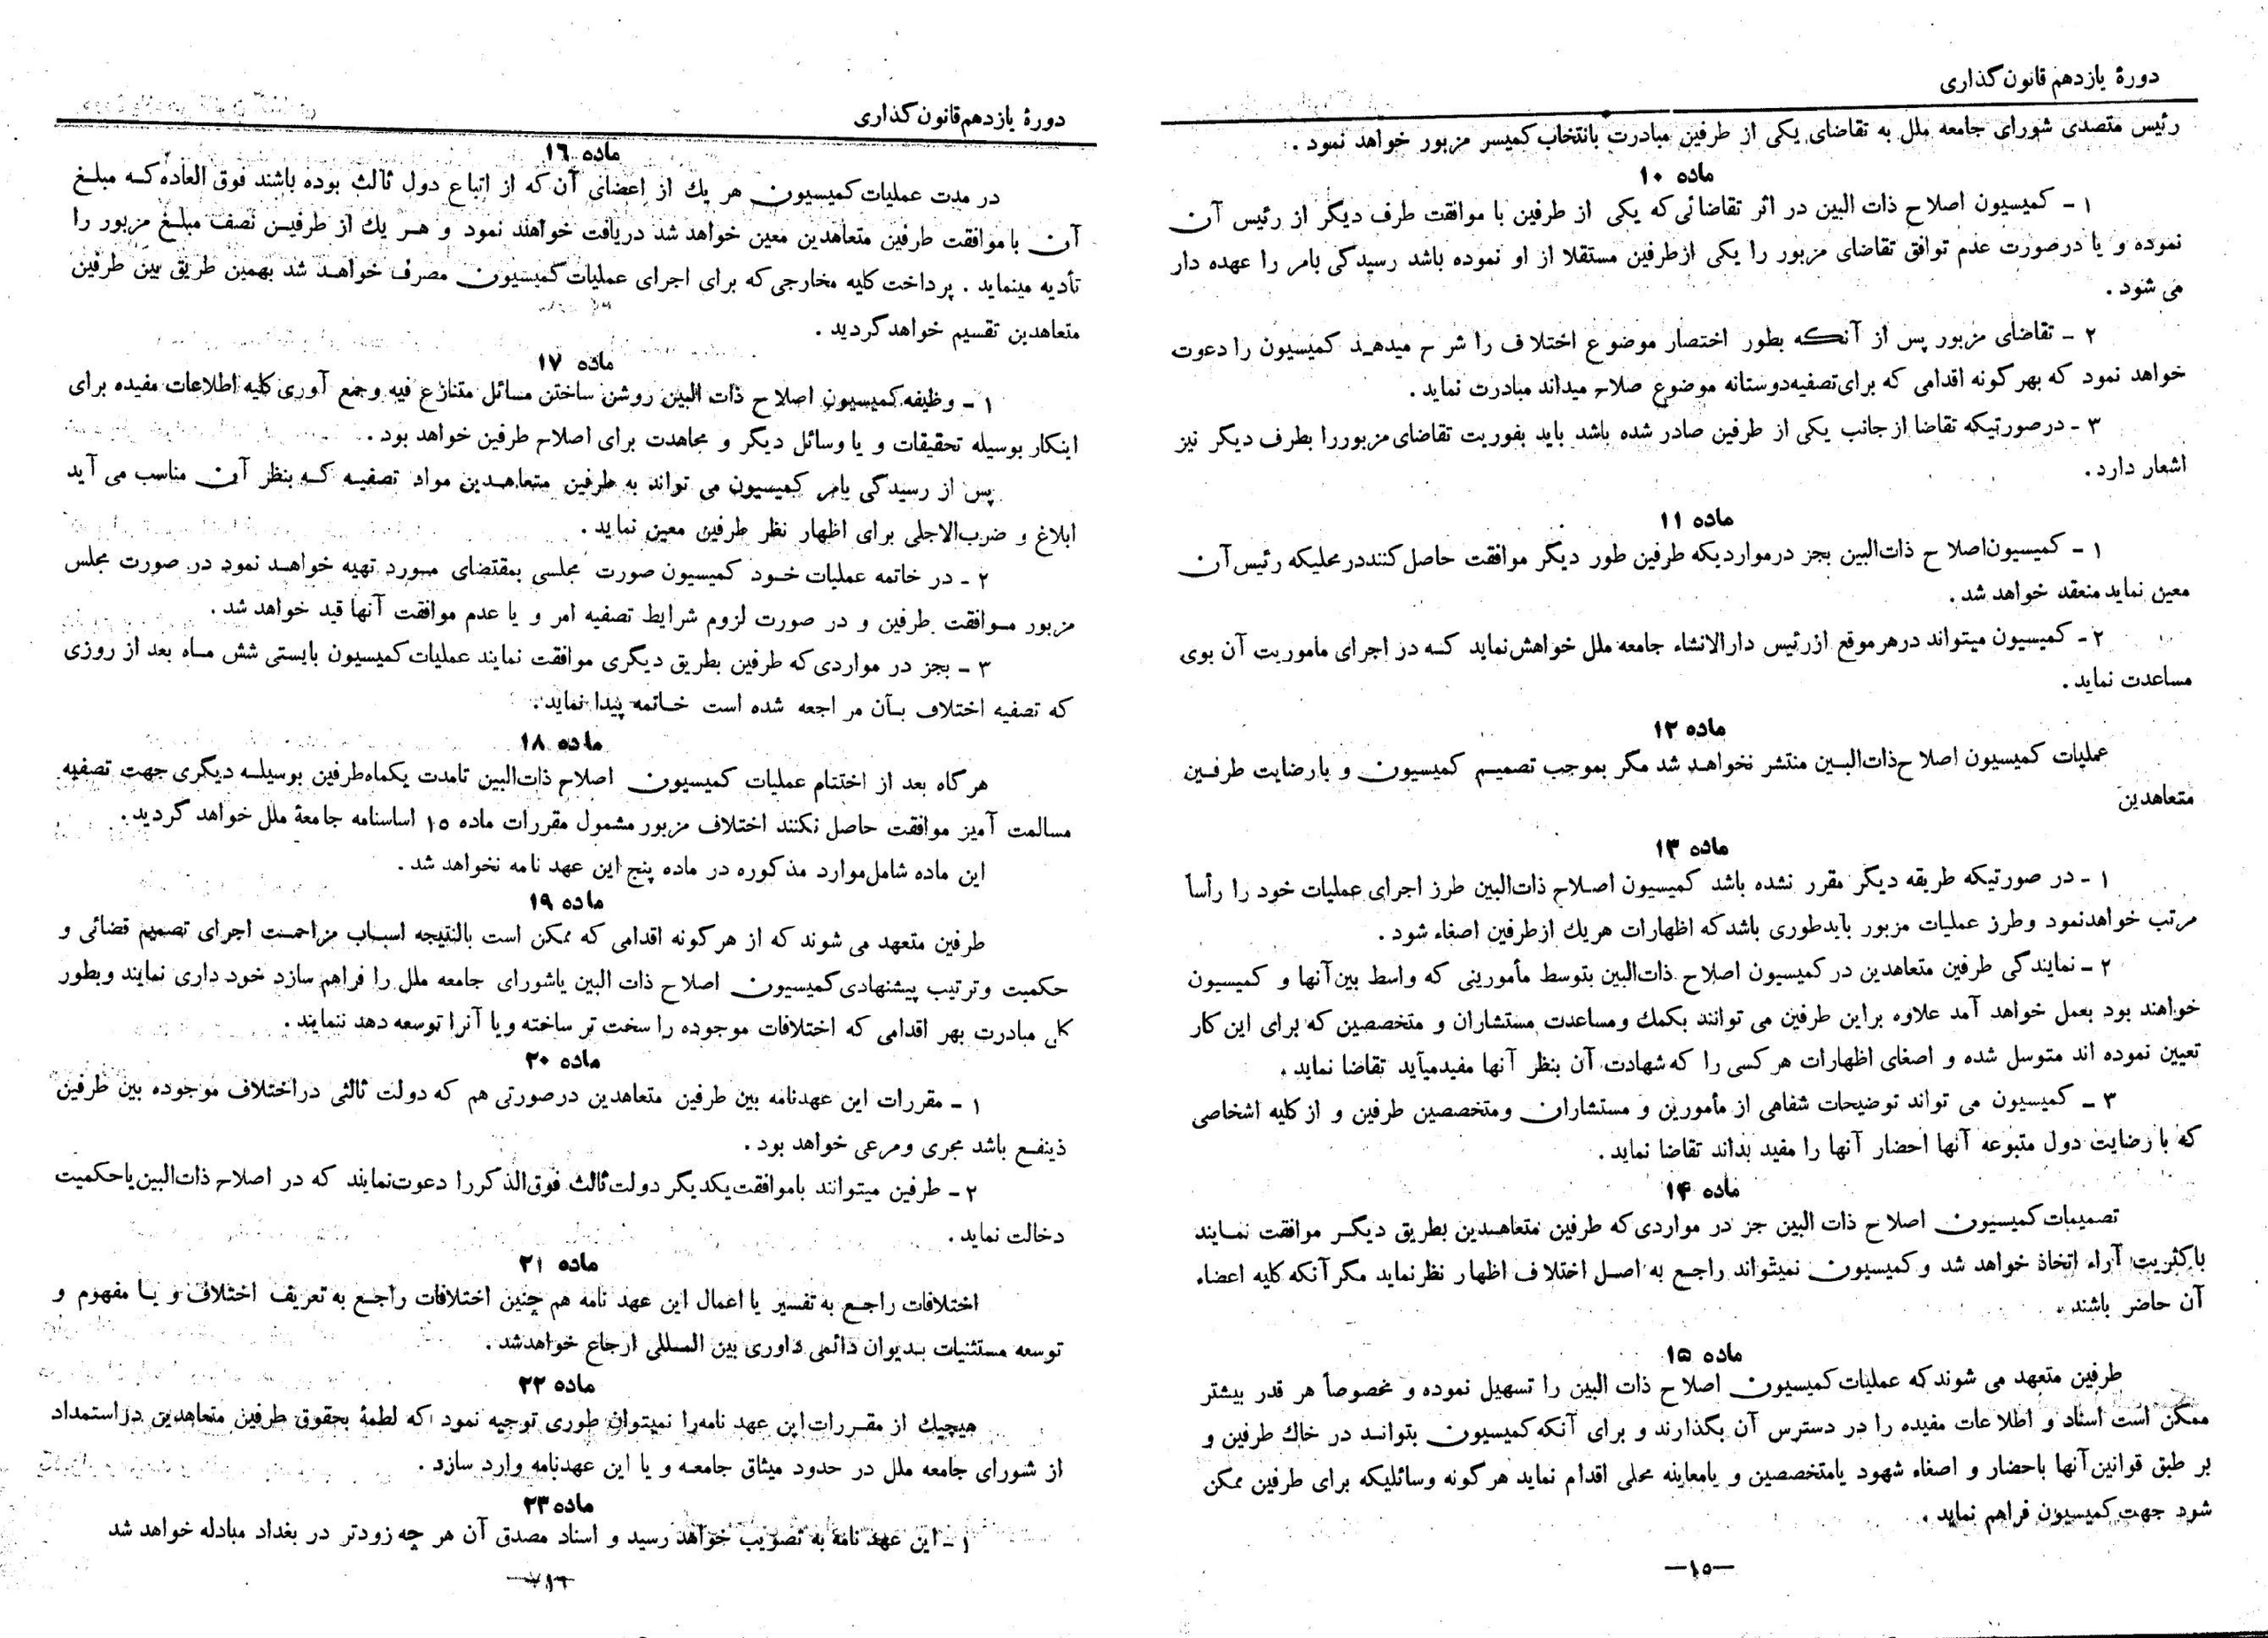 دورهٔ یازدهم قانون گذاری
رئیس متصدی شورای جامعه ملل به تقاضای یکی از طرفین مبادرت بانتخاب کمیسر مزبور خواهد نمود .
ماده ۱۰
۱ - کمیسیون اصلاح ذات البین در اثر تقاضائی که یکی از طرفین با موافقت طرف دیگر از رئیس آن
نموده و یا درصورت عدم توافق تقاضای مزبور را یکی ازطرفین مستقلا از او نموده باشد رسیدگی بامر را عهده دار
می شود .
۲ - تقاضای مزبور پس از آنکه بطور اختصار موضوع اختلاف را شرح میدهد کمیسیون را دعوت
خواهد نمود که بهرگونه اقدامی که برای تصفیه دوستانه موضوع صلاح میداند مبادرت نماید .
۳ - درصورتیکه تقاضا از جانب یکی از طرفین صادر شده باشد باید بفوریت تقاضای مزبوررا بطرف دیگر نیز
اشعار دارد .
ماده ۱۱
۱ - کمیسیون اصلاح ذات البین بجز درمواردیکه طرفین طور دیگر موافقت حاصل کنند در محلیکه رئیس آن
معین نماید منعقد خواهد شد .
۲ - کمیسیون میتواند در هر موقع از رئیس دارالانشاء جامعه ملل خواهش نماید که در اجرای مأموریت آن بوی
مساعدت نماید .
ماده ۱۲
عملیات کمیسیون اصلاح ذات البین منتشر نخواهد شد مگر بموجب تصمیم کمیسیون و یا رضایت طرفین
متعاهدین
ماده ۱۳
۱ - در صورتیکه طریقه دیگر مقرر نشده باشد کمیسیون اصلاح ذات البین طرز اجرای عملیات خود را رأساً
مرتب خواهدنمود وطرز عملیات مزبور باید طوری باشد که اظهارات هر یك از طرفین اصغاء شود .
۲ - نمایندگی طرفین متعاهدین در کمیسیون اصلاح ذات البین بتوسط مأمورینی که واسط بین آنها و کمیسیون
خواهند بود بعمل خواهد آمد علاوه براین طرفین می توانند بکمك ومساعدت مستشاران و متخصصین که برای این کار
تعیین نموده اند متوسل شده و اصغای اظهارات هر کسی را که شهادت آن بنظر آنها مفید میآید تقاضا نماید .
۳ - کمیسیون می تواند توضیحات شفاهی از مأمورین و مستشاران ومتخصصین طرفین و از کلیه اشخاصی
که با رضایت دول متبوعه آنها احضار آنها را مفید بداند تقاضا نماید .
ماده ۱۴
تصمیمات کمیسیون اصلاح ذات البین جز در مواردی که طرفین متعاهدین بطریق دیگر موافقت نمایند
باکثریت آراء اتخاذ خواهد شد و کمیسیون نمیتواند راجع به اصل اختلاف اظهار نظر نماید مگر آنکه کلیه اعضاء
آن حاضر باشند .
ماده ۱۵
طرفین متعهد می شوند که عملیات کمیسیون اصلاح ذات البین را تسهیل نموده و مخصوصاً هر قدر بیشتر
ممکن است اسناد و اطلاعات مفیده را در دسترس آن بگذارند و برای آنکه کمیسیون بتواند در خاك طرفین و
بر طبق قوانین آنها باحضار و اصغاء شهود یامتخصصین و یامعاینه محلی اقدام نماید هر گونه وسائلیکه برای طرفین ممکن
شود جهت کمیسیون فراهم نماید .
—۱۵—
دورهٔ یازدهم قانون گذاری
ماده ۱۶
در مدت عملیات کمیسیون هر یك از اعضای آن که از اتباع دول ثالث بوده باشند فوق العاده که مبلغ
آن با موافقت طرفین متعاهدین معین خواهد شد دریافت خواهند نمود و هر یك از طرفین نصف مبلغ مزبور را
تأدیه مینماید . پرداخت کلیه مخارجی که برای اجرای عملیات کمیسیون مصرف خواهد شد بهمین طریق بین طرفین
متعاهدین تقسیم خواهد گردید .
ماده ۱۷
۱ - وظیفه کمیسیون اصلاح ذات البین روشن ساختن مسائل متنازع فیه وجمع آوری کلیه اطلاعات مفیده برای
اینکار بوسیله تحقیقات و یا وسائل دیگر و مجاهدت برای اصلاح طرفین خواهد بود .
پس از رسیدگی بامر کمیسیون می تواند به طرفین متعاهدین مواد تصفیه که بنظر آن مناسب می آید
ابلاغ و ضرب الاجلی برای اظهار نظر طرفین معین نماید .
۲ - در خاتمه عملیات خود کمیسیون صورت مجلسی بمقتضای مورد تهیه خواهد نمود در صورت مجلس
مزبور موافقت طرفین و در صورت لزوم شرایط تصفیه امر و یا عدم موافقت آنها قید خواهد شد .
۳ - بجز در مواردی که طرفین بطریق دیگری موافقت نمایند عملیات کمیسیون بایستی شش ماه بعد از روزی
که تصفیه اختلاف بآن مراجعه شده است خاتمه پیدا نماید .
ماده ۱۸
هرگاه بعد از اختتام عملیات کمیسیون اصلاح ذات البین تامدت یکماه طرفین بوسیله دیگری جهت تصفیه
مسالمت آمیز موافقت حاصل نکنند اختلاف مزبور مشمول مقررات ماده ۱۵ اساسنامه جامعهٔ ملل خواهد گردید .
این ماده شامل موارد مذکوره در ماده پنج این عهد نامه نخواهد شد .
ماده ۱۹
طرفین متعهد می شوند که از هر گونه اقدامی که ممکن است بالنتیجه اسباب مزاحمت اجرای تصمیم قضائی و
حکمیت وترتیب پیشنهادی کمیسیون اصلاح ذات البین یاشورای جامعه ملل را فراهم سازد خود داری نمایند وبطور
کلی مبادرت بهر اقدامی که اختلافات موجوده را سخت تر ساخته ویا آنرا توسعه دهد ننمایند .
ماده ۲۰
۱ - مقررات این عهدنامه بین طرفین متعاهدین درصورتی هم که دولت ثالثی در اختلاف موجوده بین طرفین
ذینفع باشد مجری ومرعی خواهد بود .
۲ - طرفین میتوانند باموافقت یکدیگر دولت ثالث فوق الذکررا دعوت نمایند که در اصلاح ذات البین یاحکمیت
دخالت نماید .
ماده ۲۱
اختلافات راجع به تفسیر یا اعمال این عهد نامه هم چنین اختلافات راجع به تعریف اختلاف و یا مفهوم و
توسعه مستثنیات بدیوان دائمی داوری بین المللی ارجاع خواهدشد .
ماده ۲۲
هیچیك از مقررات این عهد نامه را نمیتوان طوری توجیه نمود که لطمهٔ بحقوق طرفین متعاهدین در استمداد
از شورای جامعه ملل در حدود میثاق جامعه و یا این عهدنامه وارد سازد .
ماده ۲۳
۱ - این عهد نامه به تصویب خواهد رسید و اسناد مصدق آن هر چه زودتر در بغداد مبادله خواهد شد